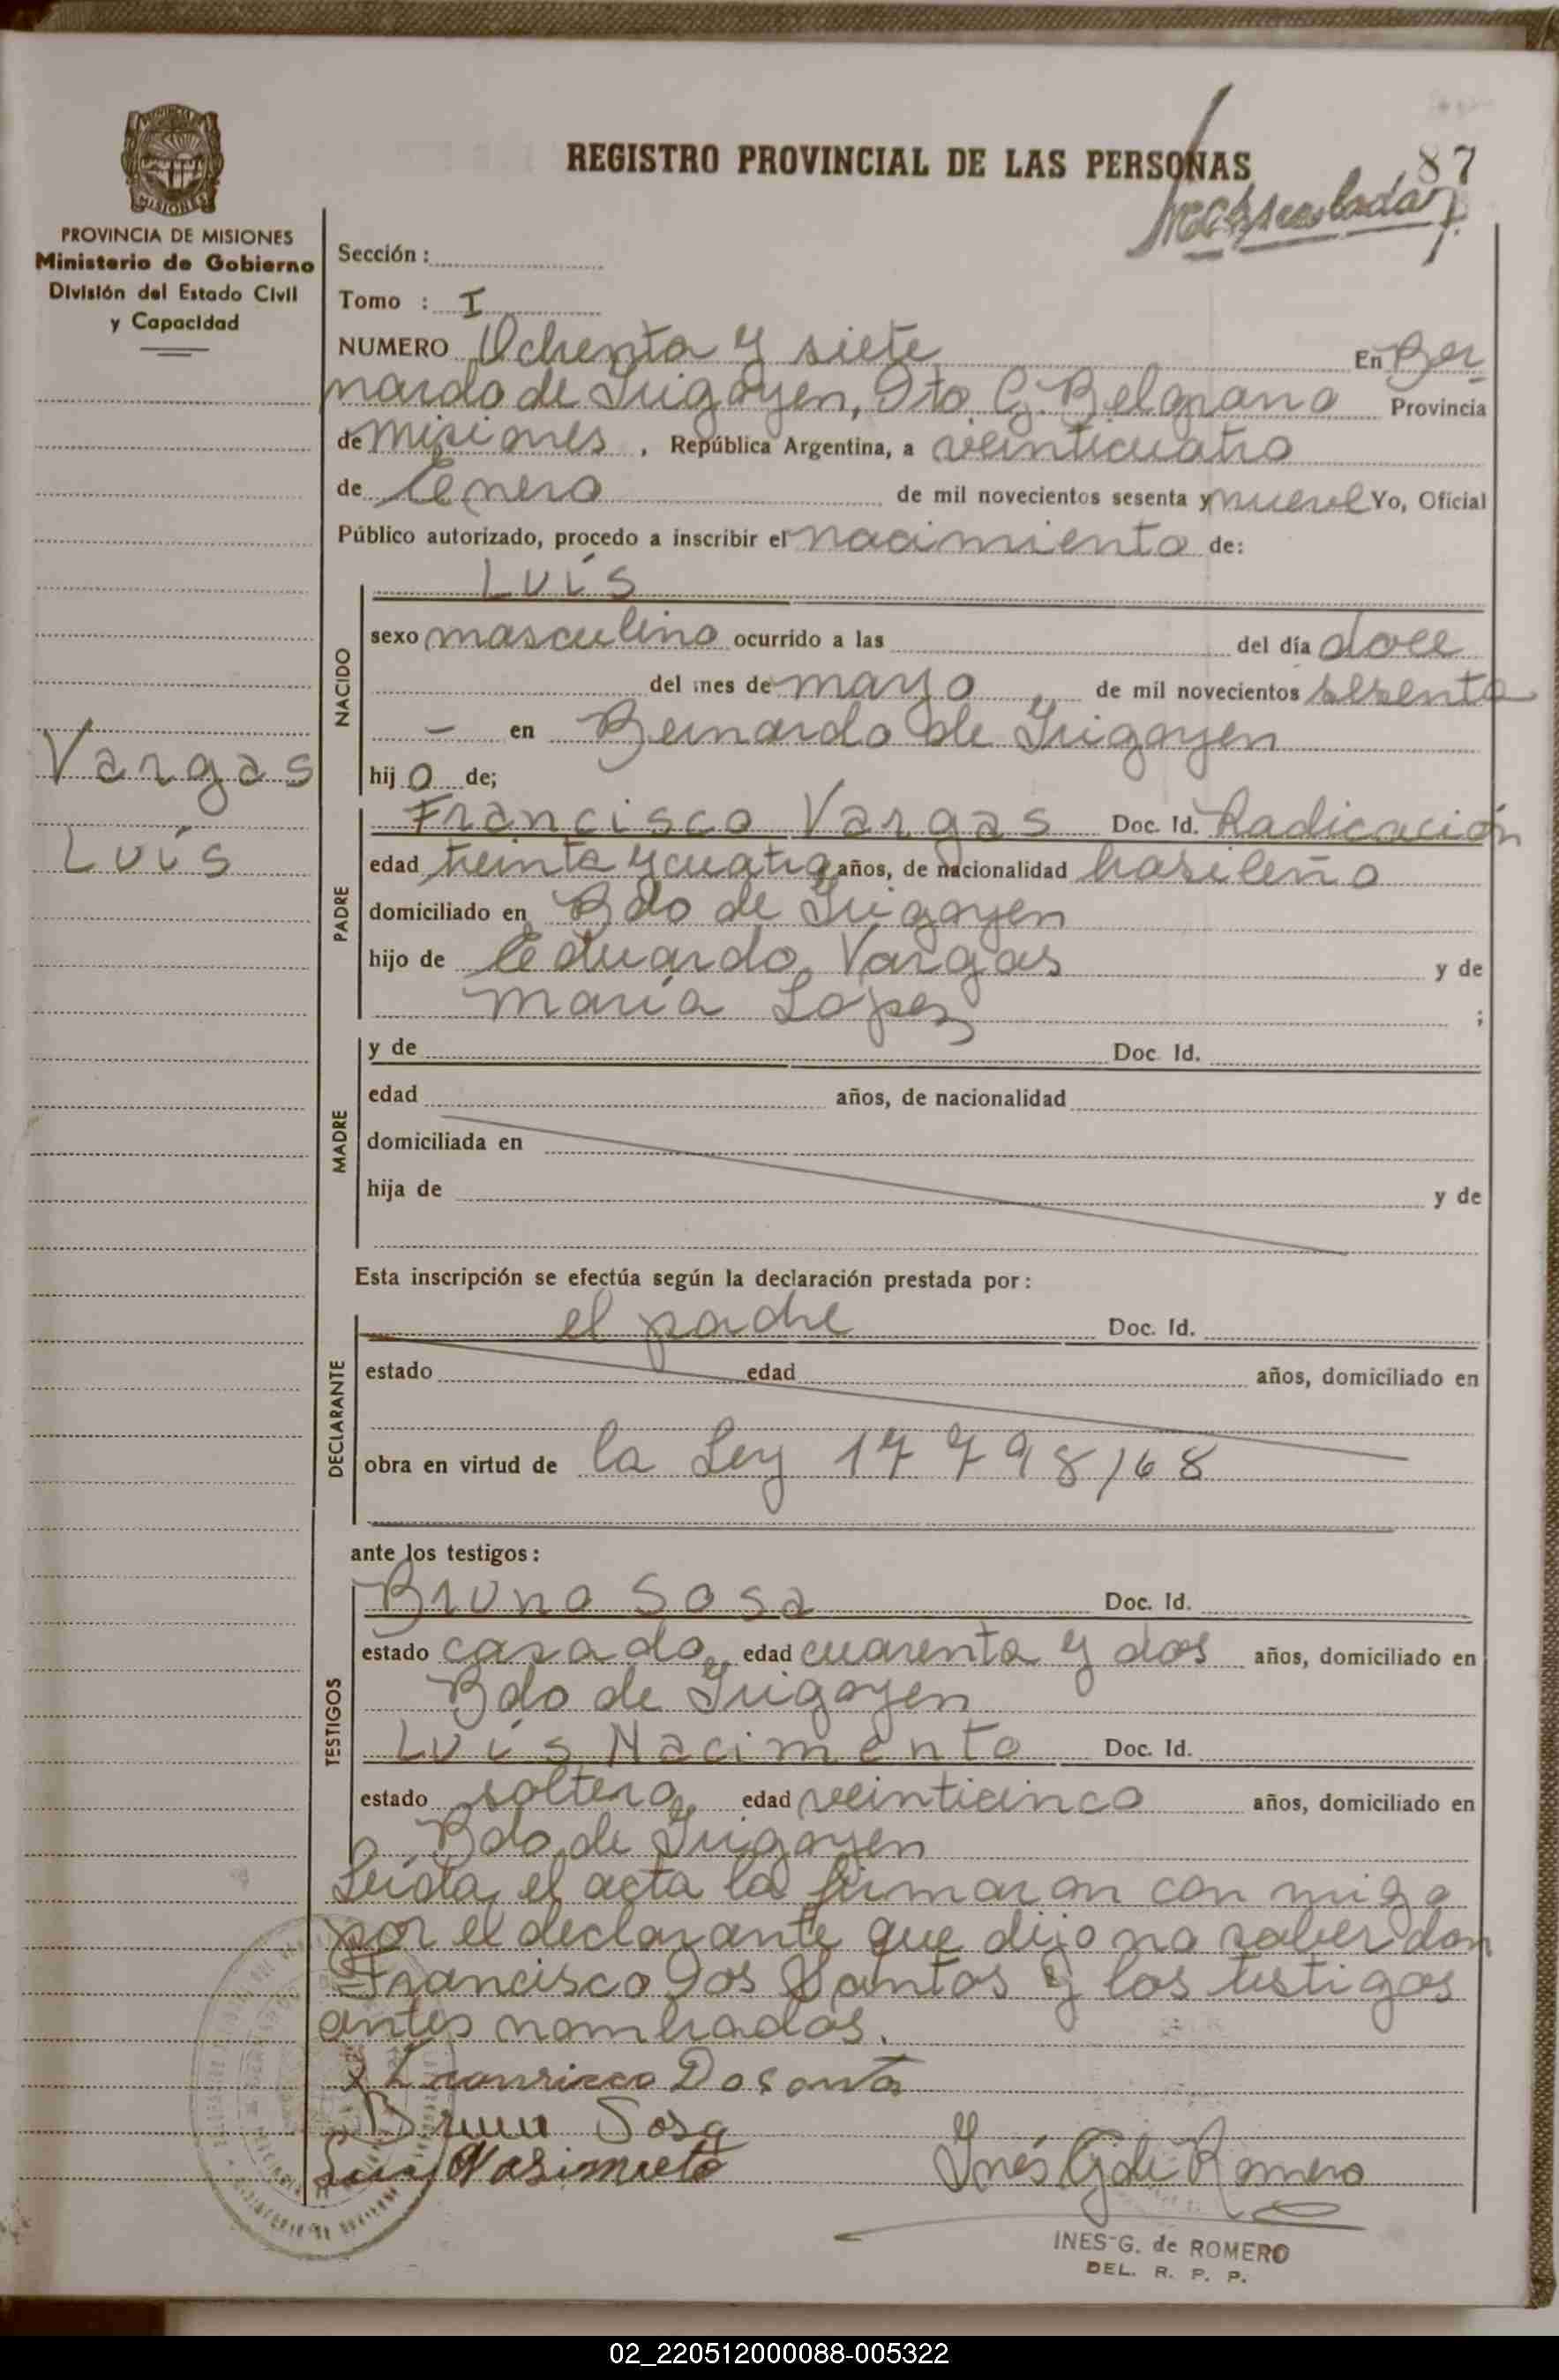 REGISTRO PROVINCIAL DE LAS PERSONAS
87
PROVINCIA DE MISIONES
Ministerio de Gobierno
División del Estado Civil
y Capacidad
Sección :
Tomo : I
NUMERO Ochenta y siete En Ber-
nardo de Irigoyen, Dto. G. Belgrano Provincia
de Misiones , República Argentina, a veinticuatro
de Enero de mil novecientos sesenta y nueve Yo, Oficial
Público autorizado, procedo a inscribir el nacimiento de:
Luís
NACIDO
sexo masculino ocurrido a las del día doce
del mes de mayo de mil novecientos sesenta
- en Bernardo de Irigoyen
hij o de;
Vargas
Luís
PADRE
Francisco Vargas Doc. Id. Radicación
edad treinta y cuatro años, de nacionalidad brasileño
domiciliado en Bdo de Irigoyen
hijo de Eduardo Vargas y de
María Lopez ;
MADRE
y de Doc. Id.
edad años, de nacionalidad
domiciliada en
hija de y de
Esta inscripción se efectúa según la declaración prestada por :
DECLARANTE
el padre Doc. Id.
estado edad años, domiciliado en
obra en virtud de la Ley 17798/68
ante los testigos :
TESTIGOS
Bruno Sosa Doc. Id.
estado casado edad cuarenta y dos años, domiciliado en
Bdo de Irigoyen
Luís Nacimento Doc. Id.
estado soltero edad veinticinco años, domiciliado en
Bdo de Irigoyen
Leída el acta la firmaron con migo
por el declarante que dijo no saber don
Francisco Dos Santos y los testigos
antes nombrados.
Bruno Sosa
Inés G. de Romero
INES G. de ROMERO
DEL. R. P. P.
02_220512000088-005322